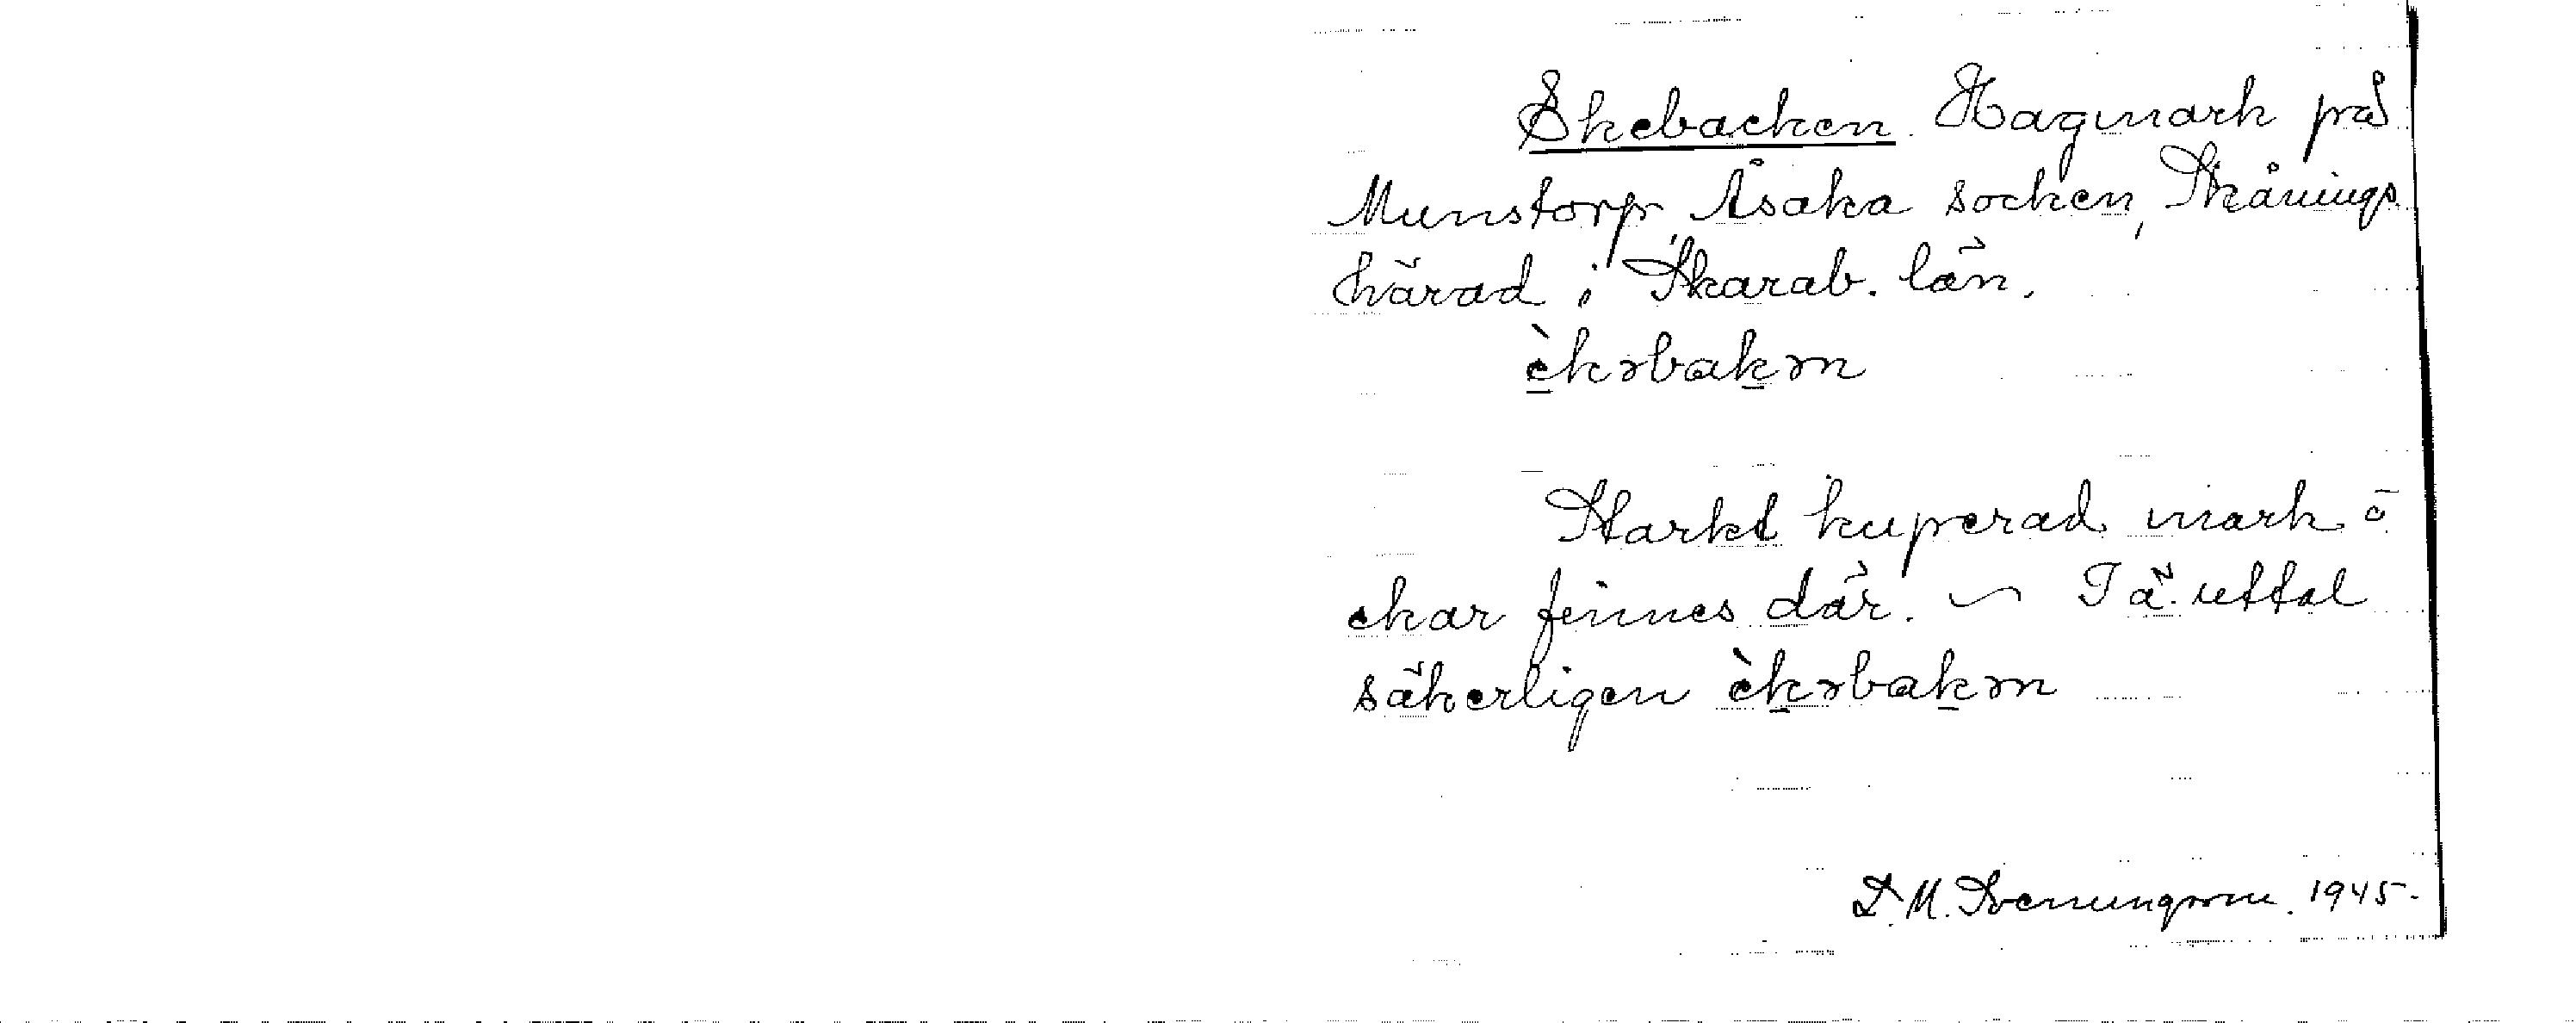 Ekebacken. Hagmark på
Munstorp, Åsaka socken, Skånings
härad i Skarab. län.
èkəbakən
Starkt kuperad mark o
ekar finnes där. ~ Tä. uttal
säkerligen èkəbakən
D. M. Svenungsson. 1945.